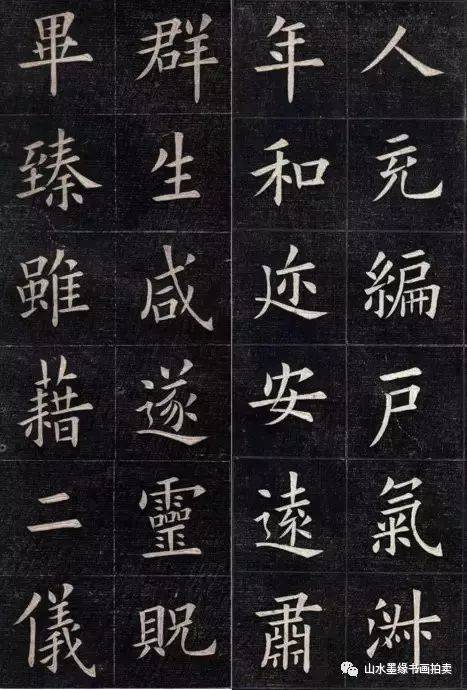 人充編户氣淑
年和迩安遠肅
群生咸遂靈貺
畢臻雖藉二儀
山水墨缘书画拍卖